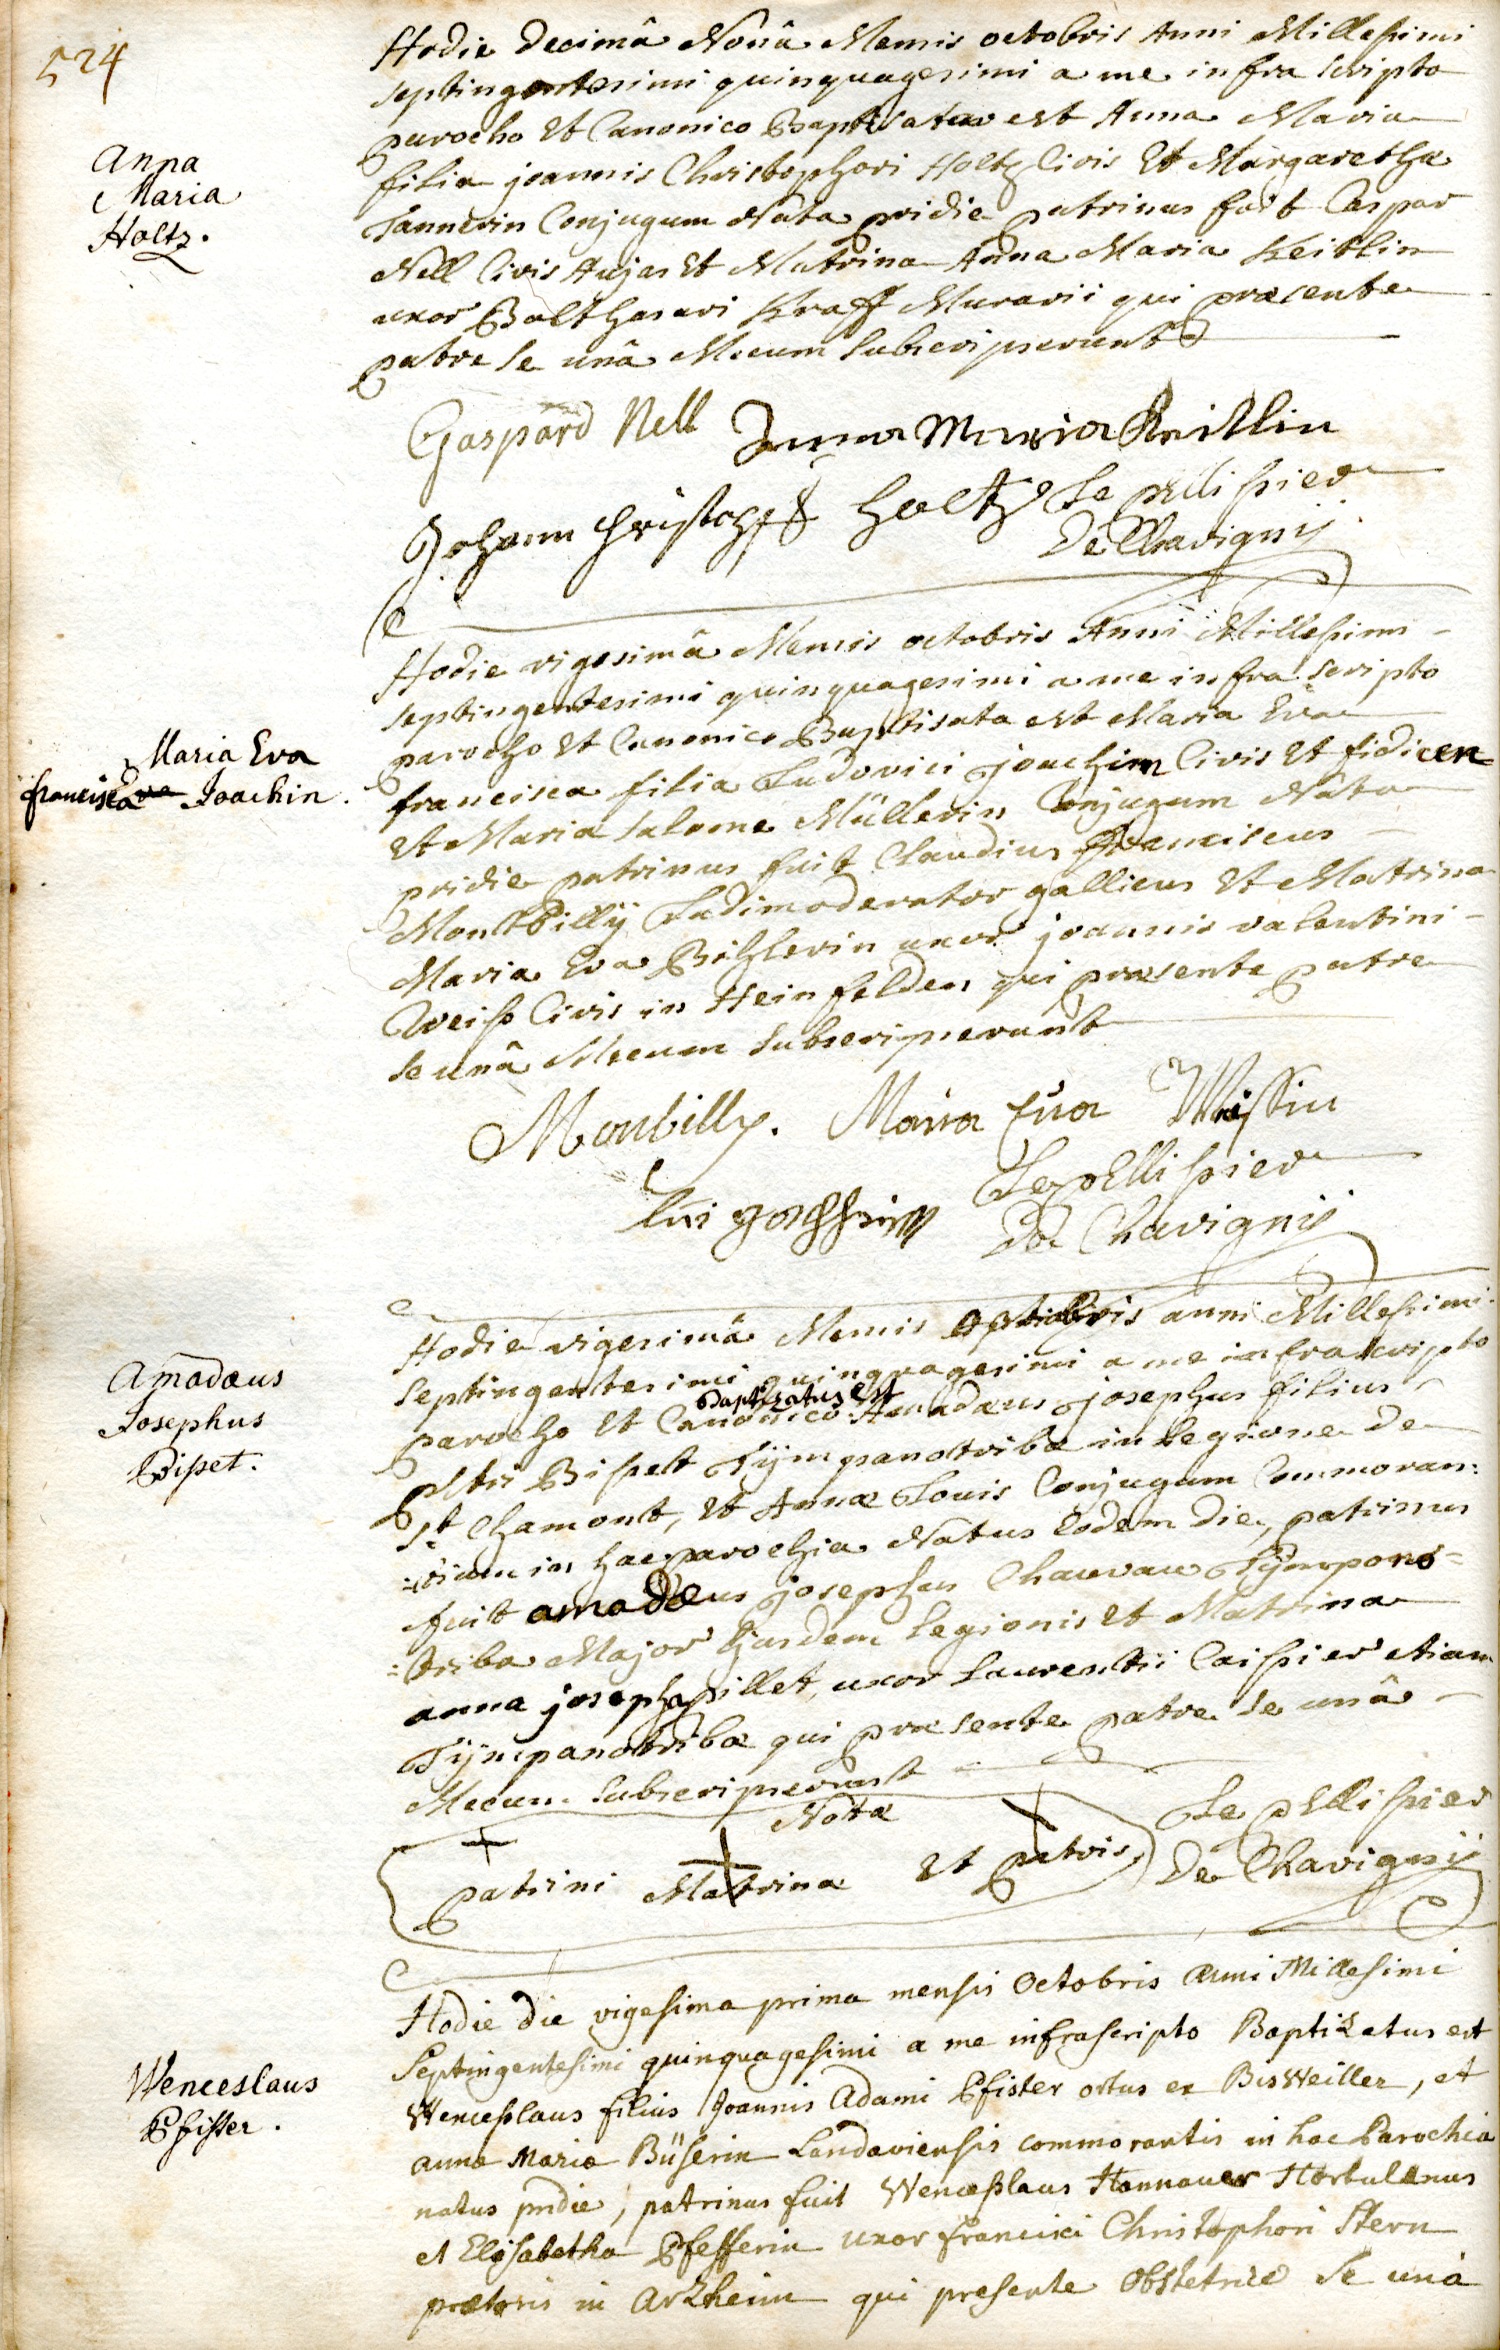 524
Anna
Maria
Holtz.
Hodie decimâ Nonâ Mensis octobris Anni Millesimi
septingentesimi quinquagesimi a me infra scripto
parocho Et Canonico Baptisata est Anna Maria
filia joannis Christophori Holtz Civis Et Margaretha
Tannerin Conjugum Nata pridie patrinus fuit Caspar
Nell Civis Hujas Et Matrina Anna Maria Keitlin
uxor Balthasari Kraff Murarii qui præsente
patre se unâ Mecum subscripserunt
Gaspard Nell Anna Maria Keitlin
Johann Christoph Holtz Le pellissier
De Chavignÿ
Maria Eva
francisca Joachin.
Hodie vigesimâ Mensis octobris Anni Millesimi
septingentesimi quinquagesimi a me infra scripto
parocho Et Canonico Baptisata est Maria Eva
francisca filia Ludovici joachim Civis Et fidicen
Et Maria Salome Müllerin Conjugum Nata
pridie patrinus fuit Claudius franciscus
Montbillÿ Ludimoderator gallicus Et Matrina
Maria Eva Bihlerin uxor joannis valentini
Weiss Civis in Heinfelden qui præsente patre
se unâ Mecum subscripserunt
Monbilly. Maria Eva Weissin
Lui Le pellissier
De Chavignÿ
Amadæus
Josephus
Bisset.
Hodie vigesimâ Mensis octobris anni Millesimi
septingentesimi quinquagesimi a me infra scripto
Baptizatus est
parocho Et Canonico Amadæus josephus filius
petri Bisset Tÿmpanotribæ in Legione De
St Chamont, Et Annæ Louis Conjugum Commoran=
=tium in hac parochia Natus Eodem die, patrinus
fuit amadæus josephus Chauvau Tÿmpano=
=triba Major Ejusdem Legionis Et Matrina
anna josepha pillet, uxor Laurentii Caissier etiam
Tÿmpanotribæ qui præsente patre se unâ
Mecum subscripserunt
Nota
patrini Matrinæ Et patris,
Le pellissier
De Chavignÿ
Wenceslaus
Pfister.
Hodie die vigesima prima mensis Octobris Anni Millesimi
Septingentesimi quinquagesimi a me infrascripto Baptizatus est
Wenceslaus filius Joannis Adami Pfister ortus ex Bisweiller, et
anna Maria Büserin Landaviensis commorantis in hac Parochia
natus pridie, patrinus fuit Wenceslaus Hannauer Hortulanus
et Elisabetha Pfefferin uxor francisci Christophori Stern
prætoris in Arzheim qui presente Obstetrice se unâ